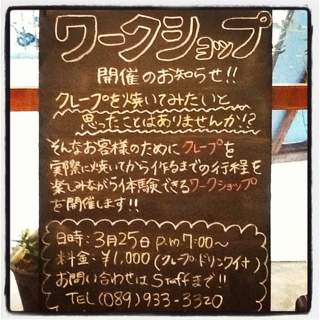 ワークショップ
開催のお知らせ!!
クレープを焼いてみたいと
思ったことはありませんか!?
そんなお客様のためにクレープを
実際に焼いてから作るまでの行程を
楽しみながら体験できるワークショップ
を開催します!!
日時：3月25日 p.m 7:00〜
料金：¥1,000（クレープ・ドリンク付）
お問い合わせはStaffまで!!
TEL (089) 933-3320